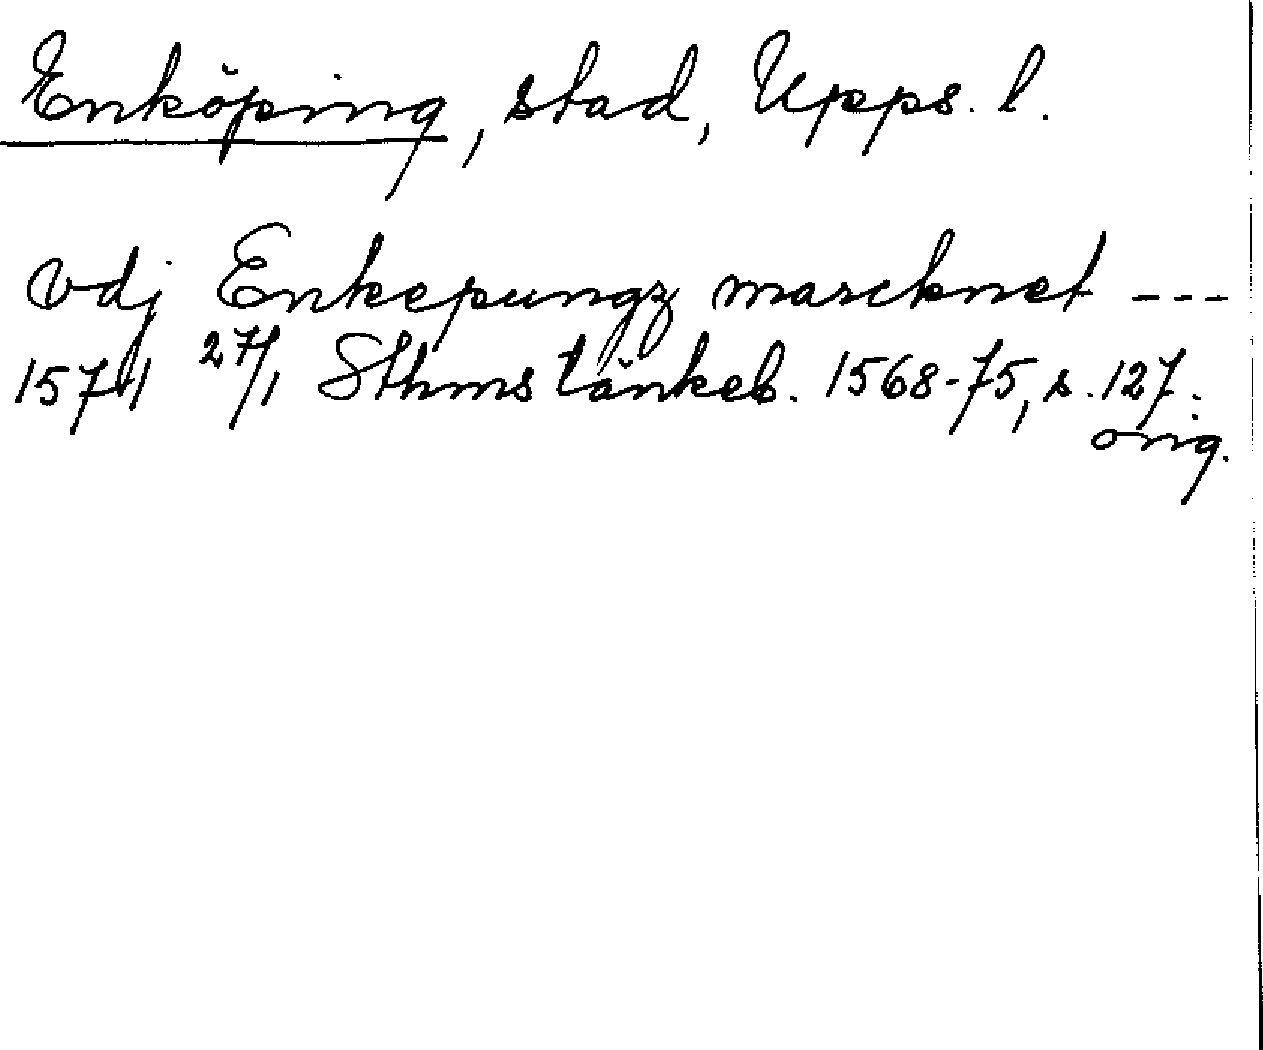 Enköping, stad, Upps. l.
vdj Enkepungz marcknet ---
1571 27/1 Sthms tänkeb. 1568-75, s. 127.
orig.